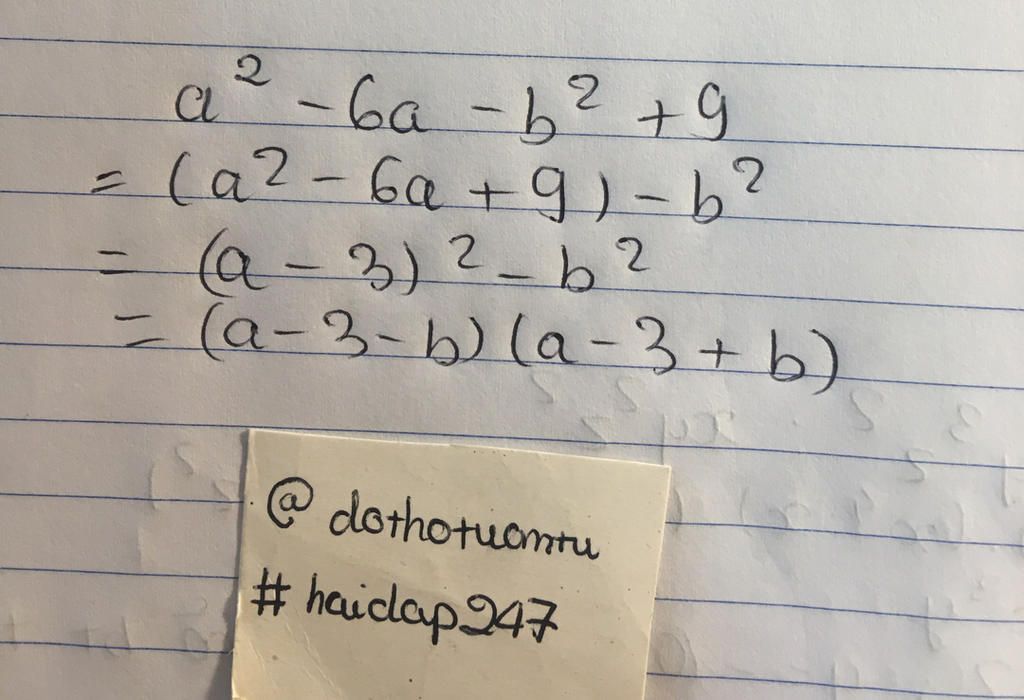 a² - 6a - b² + 9
= (a² - 6a + 9) - b²
= (a - 3)² - b²
= (a - 3 - b) (a - 3 + b)
@dothotuantu
#haidap247